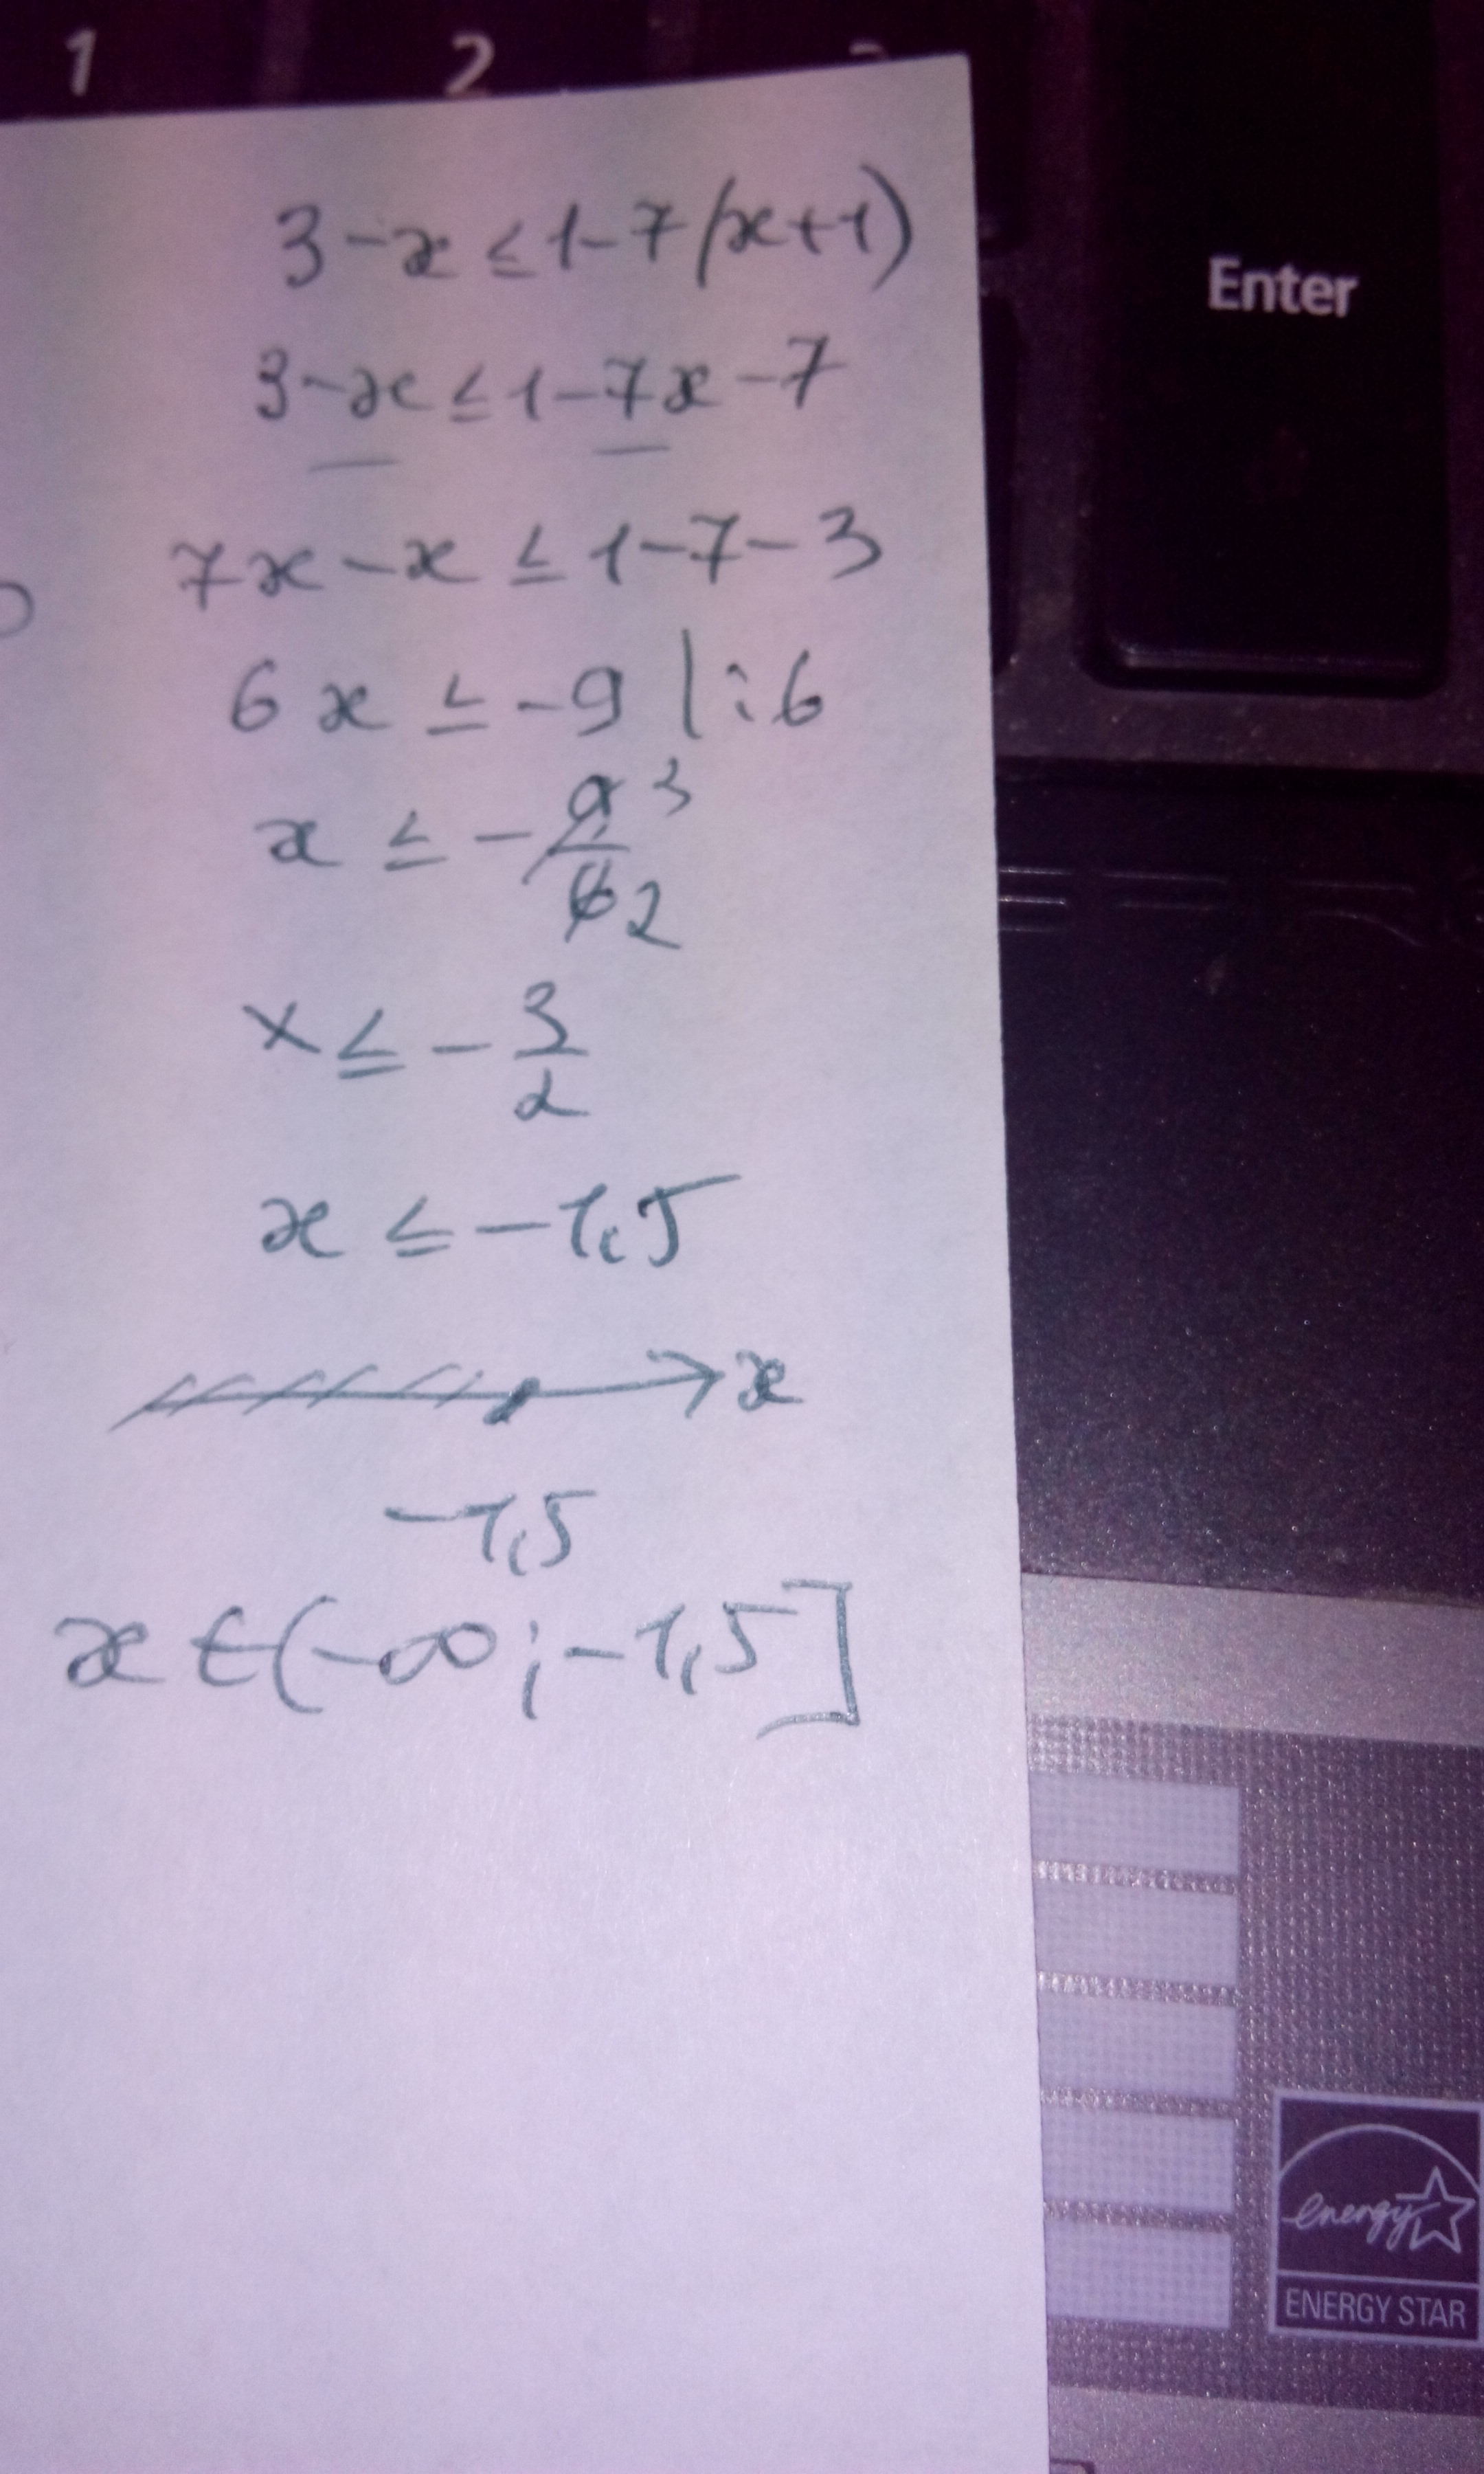 1 2
Enter
3-x≤1-7(x+1)
3-x≤1-7x-7
7x-x≤1-7-3
6x≤-9 |:6
x≤-9/6 3 2
x≤-3/2
x≤-1,5
x
-1,5
x∈(-∞;-1,5]
energy
ENERGY STAR